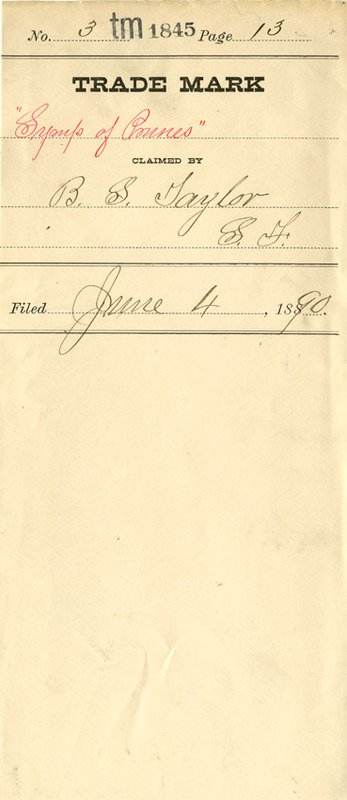 No. 3 tm 1845 Page 13
TRADE MARK
"Syrup of Prunes"
CLAIMED BY
B. S. Taylor
S. F.
Filed June 4, 1890.